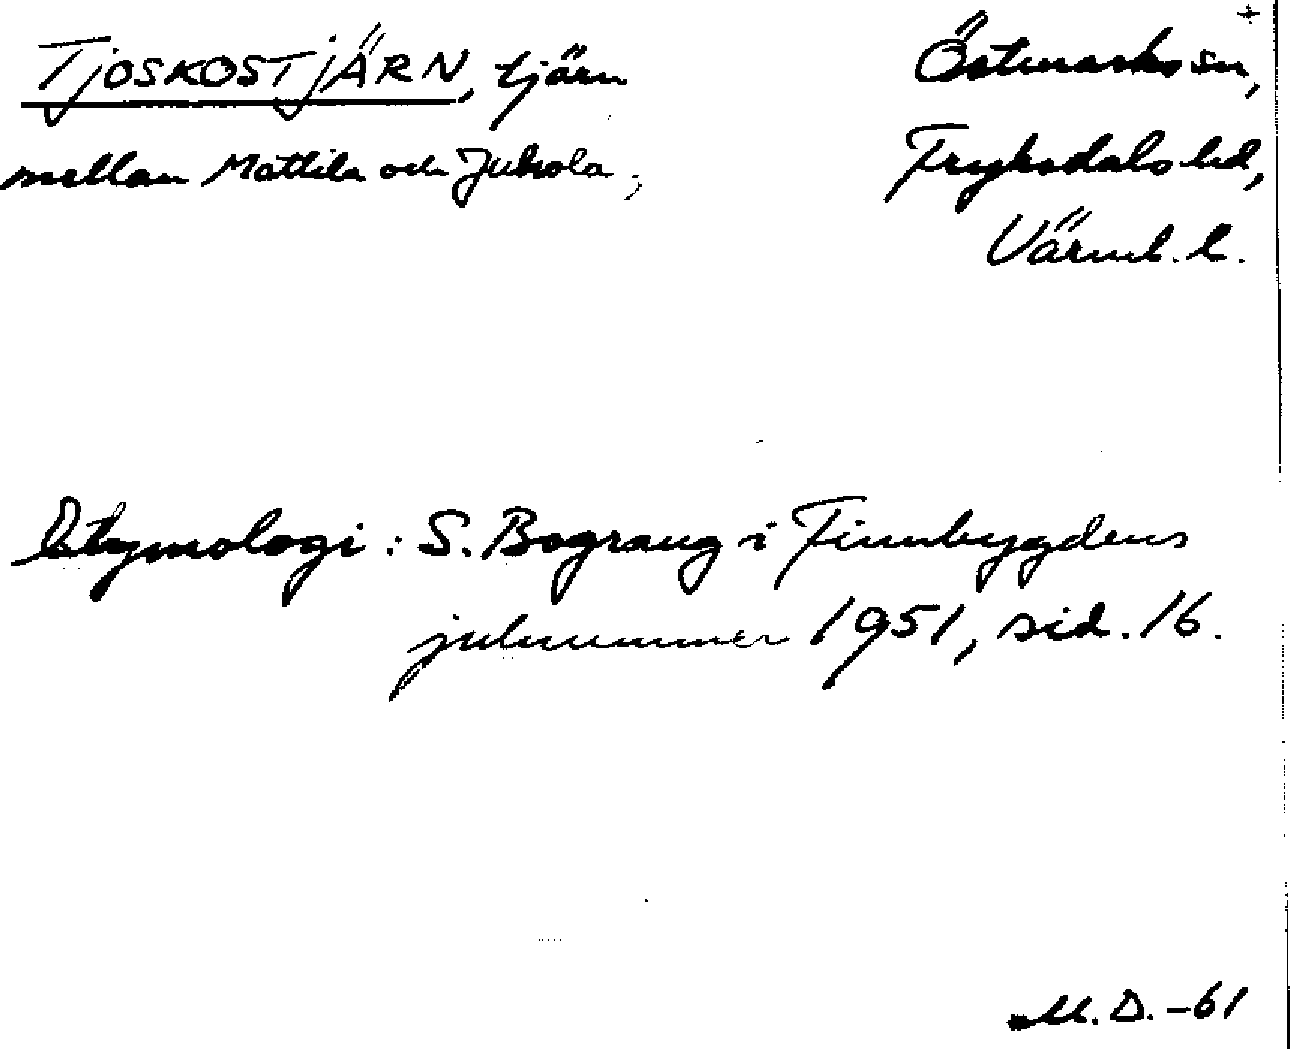 TJOSKOSTJÄRN, tjärn
mellan Mattila och Juhola;
Östmarks sn,
Fryksdals hd,
Värml. l.
Etymologi: S. Bograng i Finnbygdens
julnummer 1951, sid. 16.
M. D. -61